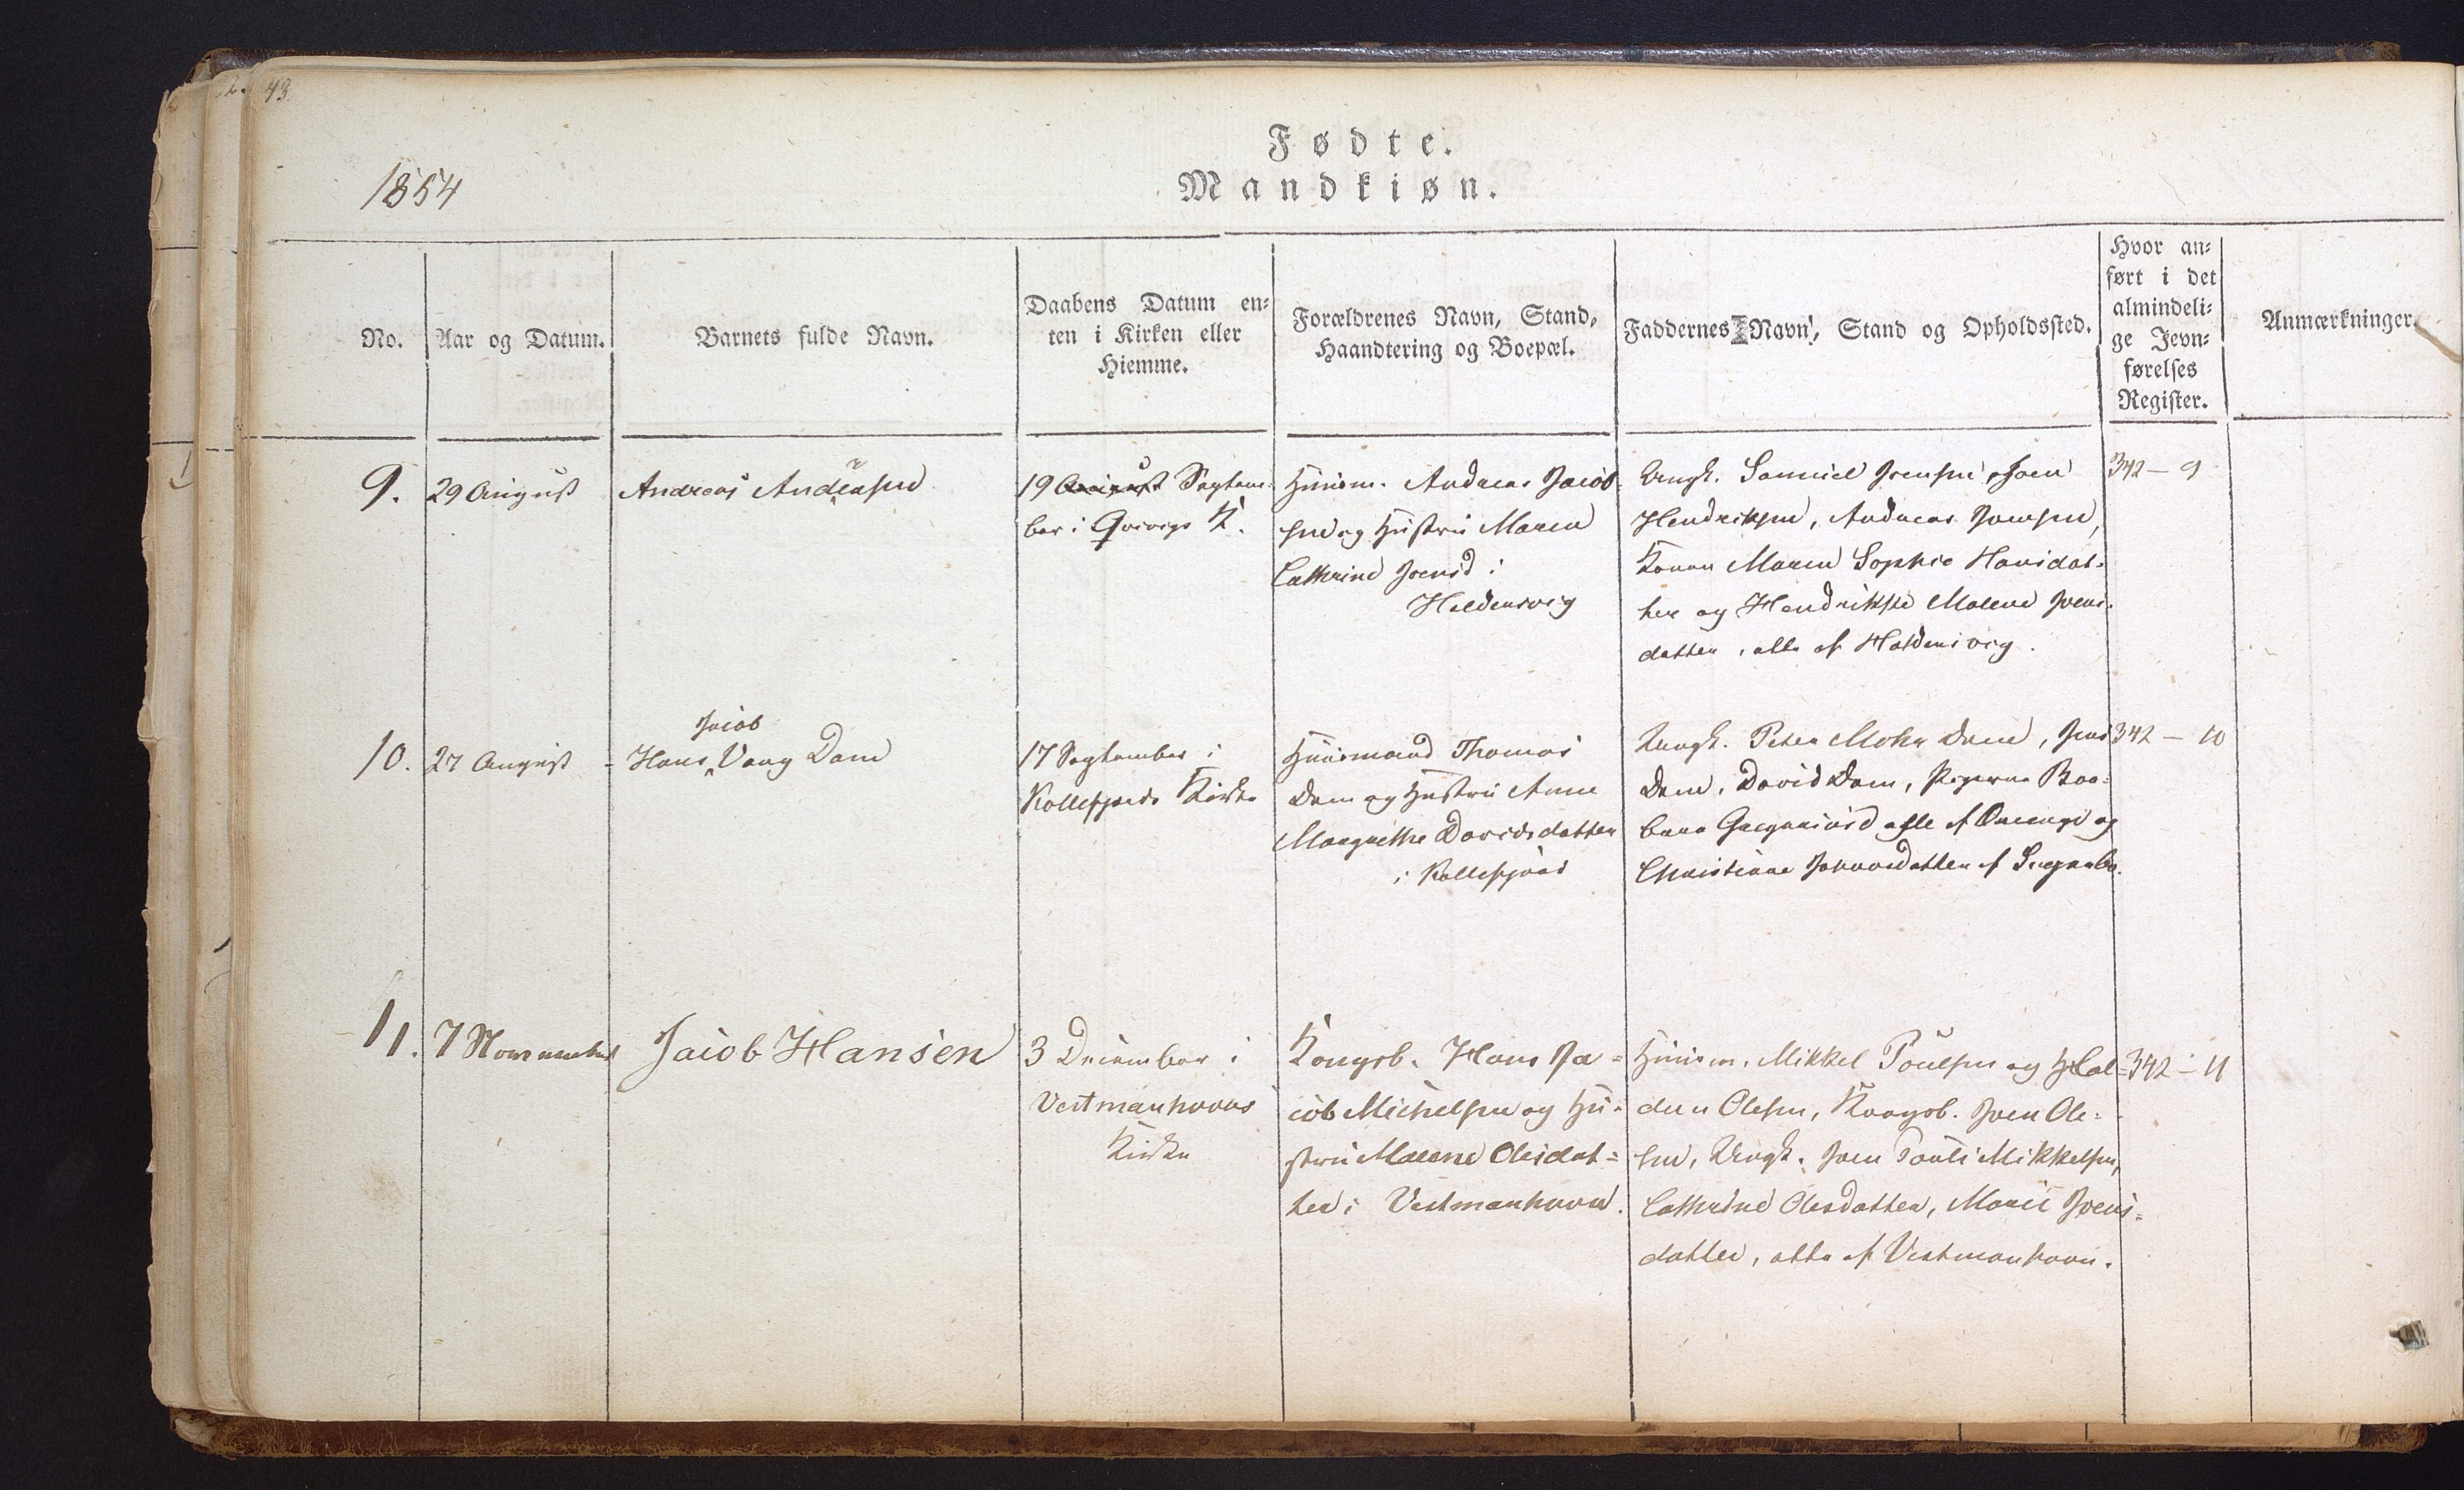 43.
1854
Fødte.
Mandkiøn.
No.
Aar og Datum.
Barnets fulde Navn.
Daabens Datum en-
ten i Kirken eller
Hiemme.
Forældrenes Navn, Stand,
Haandtering og Boepæl.
Faddernes Navn, Stand og Opholdssted.
Hvor an-
ført i det
almindeli-
ge Jevn-
førelses
Register.
Anmærkninger.
9.
29 August
Andreas Andreasen
19 August Septem-
ber i Qvivigs K.
Huusm. Andreas Jacob-
sen og Hustru Maren
Cathrine Joensd i
Haldersvig
Ungk. Samuel Joensen, Joen
Hendriksen, Andreas Joensen,
Konen Maren Sophie Hansdat-
ter og Hendrikke Malene Joens-
datter, alle af Haldersvig.
342 — 9
10.
27 August
Jacob
Hans Vang Dam
17 September i
Kollefjords Kirke
Huusmand Thomas
Dam og Hustru Anne
Margrethe Davidsdatter
i Kollefjord
Ungk. Peter Mohr Dam, Jens
Dam, David Dam, Pigerne Bar-
bara alle af og
Christiane af
342 — 10
11.
7 November
Jacob Hansen
3 December i
Vestmanhavns
Kirke
Kongsb. Hans Ja-
cob Michelsen og Hu-
stru Malene Olesdat-
ter i Vestmanhavn.
Huusm. Mikkel Poulsen og Hal-
den Olesen, Kongsb. Joen Ole-
sen, Ungk. Joen Pauli Mikkelsen,
Cathrine Olesdatter, Marie Joens-
datter, alle af Vestmanhavn.
342 — 11